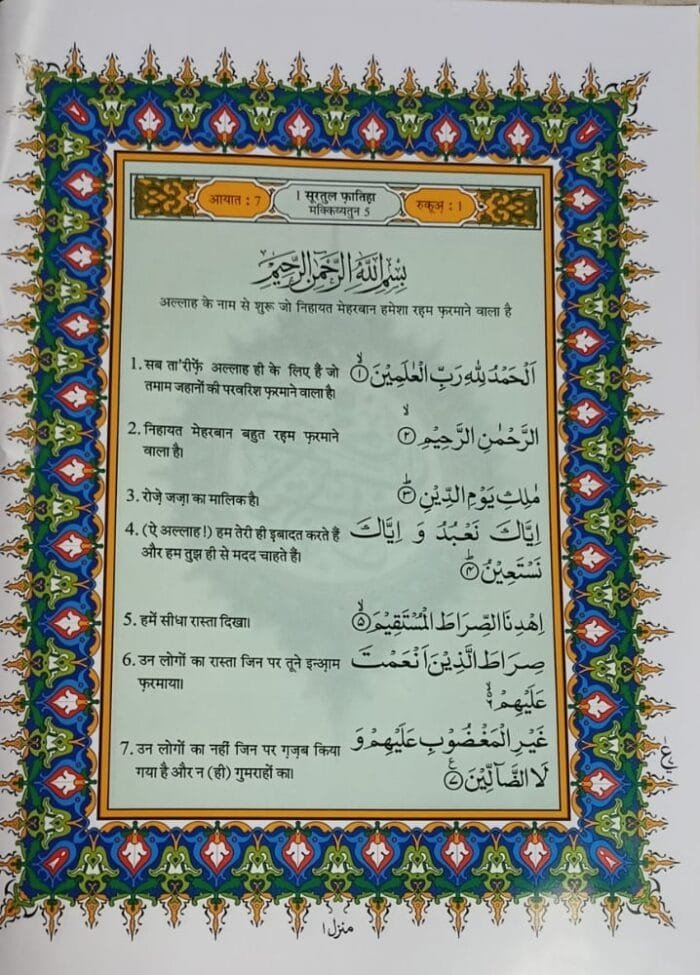 आयात : 7
1 सूरतुल फ़ातिहा
मक्किय्यतुन 5
रुकूअ़ : 1
بِسْمِ اللّٰهِ الرَّحْمٰنِ الرَّحِيْمِ
अल्लाह के नाम से शुरू जो निहायत मेहरबान हमेशा रह़म फ़रमाने वाला है
1. सब ता'रीफ़ें अल्लाह ही के लिए है जो
तमाम जहानों की परवरिश फ़रमाने वाला है।
اَلْحَمْدُ لِلّٰهِ رَبِّ الْعٰلَمِيْنَ ۙ﴿۱﴾
2. निहायत मेहरबान बहुत रह़म फ़रमाने
वाला है।
الرَّحْمٰنِ الرَّحِيْمِ ۙ﴿۲﴾
3. रोज़े जज़ा का मालिक है।
مٰلِكِ يَوْمِ الدِّيْنِ ؕ﴿۳﴾
4. (ऐ अल्लाह!) हम तेरी ही इबादत करते हैं
और हम तुझ ही से मदद चाहते है।
اِيَّاكَ نَعْبُدُ وَ اِيَّاكَ
نَسْتَعِيْنُ ؕ﴿۴﴾
5. हमें सीधा रास्ता दिखा।
اِهْدِنَا الصِّرَاطَ الْمُسْتَقِيْمَ ۙ﴿۵﴾
6. उन लोगों का रास्ता जिन पर तूने इन्आ़म
फ़रमाया।
صِرَاطَ الَّذِيْنَ اَنْعَمْتَ
عَلَيْهِمْ ۙ۬ۦ
7. उन लोगों का नहीं जिन पर ग़ज़ब किया
गया है और न (ही) गुमराहों का।
غَيْرِ الْمَغْضُوْبِ عَلَيْهِمْ وَ
لَا الضَّآلِّيْنَ ﴿۷﴾ع
ع
منزل ۱